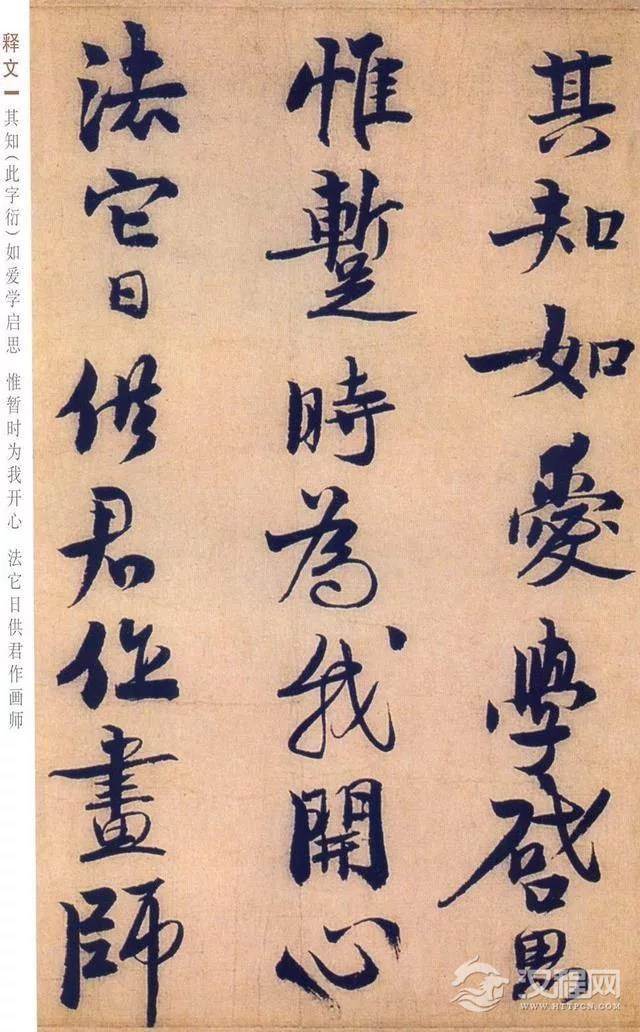 其知如愛學啓思
惟蹔時為我開心
法它日供君作畫師
释文
其知（此字衍）如爱学启思 惟暂时为我开心 法它日供君作画师
汉程网
WWW.HTTPCN.COM